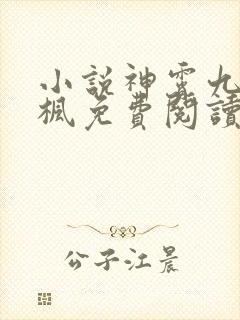 小說神霄九
楓免費閱讀
公子江晨